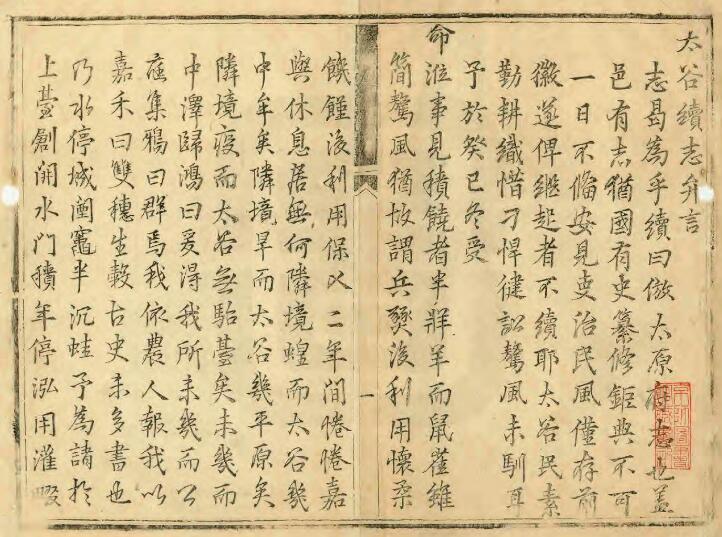 太谷續志弁言
志曷為乎續曰倣太原府志也蓋
邑有志猶國有史纂修鉅典不可
一日不備安見吏治民風僅存前
徽遂俾繼起者不續耶太谷民素
勤耕織惜刁悍健訟鶩風未馴耳
予於癸巳冬受
命涖事見積饒者半牂羊而鼠雀雖
簡鶩風猶故謂兵燹後利用懷柔
饑饉後利用保乂二年間惓惓嘉
與休息居無何隣境蝗而太谷幾
中牟矣隣境旱而太谷幾平原矣
隣境疫而太谷無駘臺矣未幾而
中澤歸鴻曰爰得我所未幾而公
庭集鴉曰群焉我依農人報我以
嘉禾曰雙穗生數古史未多書也
乃水停城闉竈半沉蛙予為請於
上臺創開水門積年停泓用灌畷